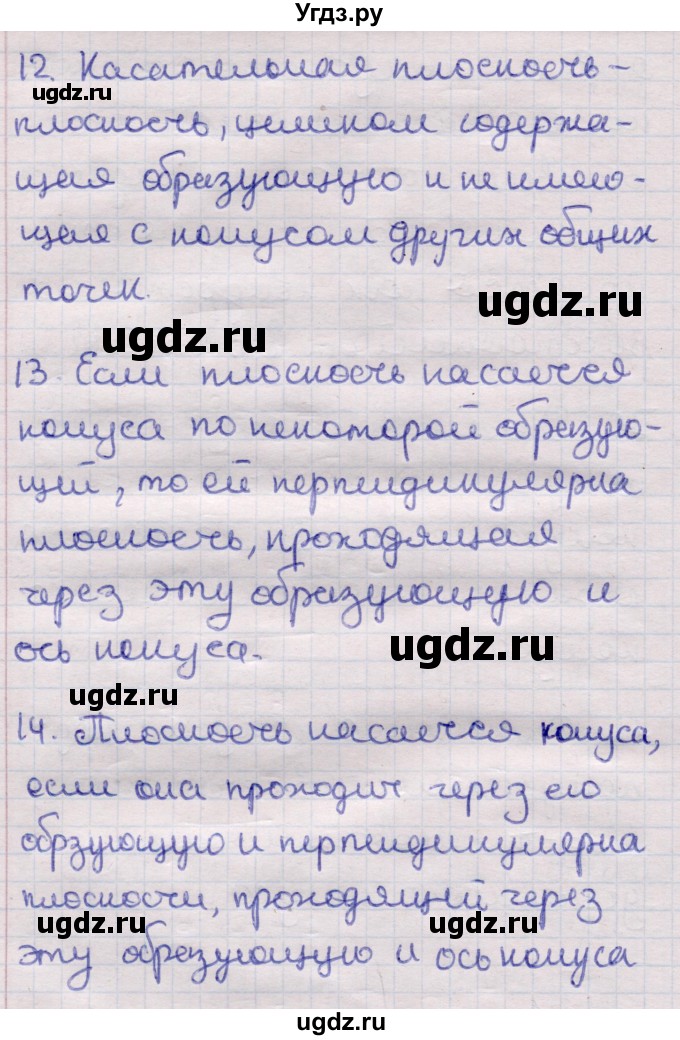 Угдз.ру
12. Касательная плоскость -
ugdz.ru
плоскость, целиком содержа-
щая образующую и не имею-
щая с конусом других общих
точек.
ugdz.ru
ugdz.ru
13. Если плоскость касается
конуса по некоторой образую-
щей, то ей перпендикулярна
плоскость, проходящая
через эту образующую и
ось конуса.
ugdz.ru
ugdz.ru
14. Плоскость касается конуса,
если она проходит через его
обрзующую и перпендикулярна
плоскости, проходящей через
ugdz.ru
ugdz.ru
эту образующую и ось конуса
ugdz.ru